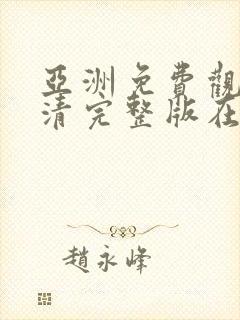 亞洲免費觀
清完整版在
趙永峰